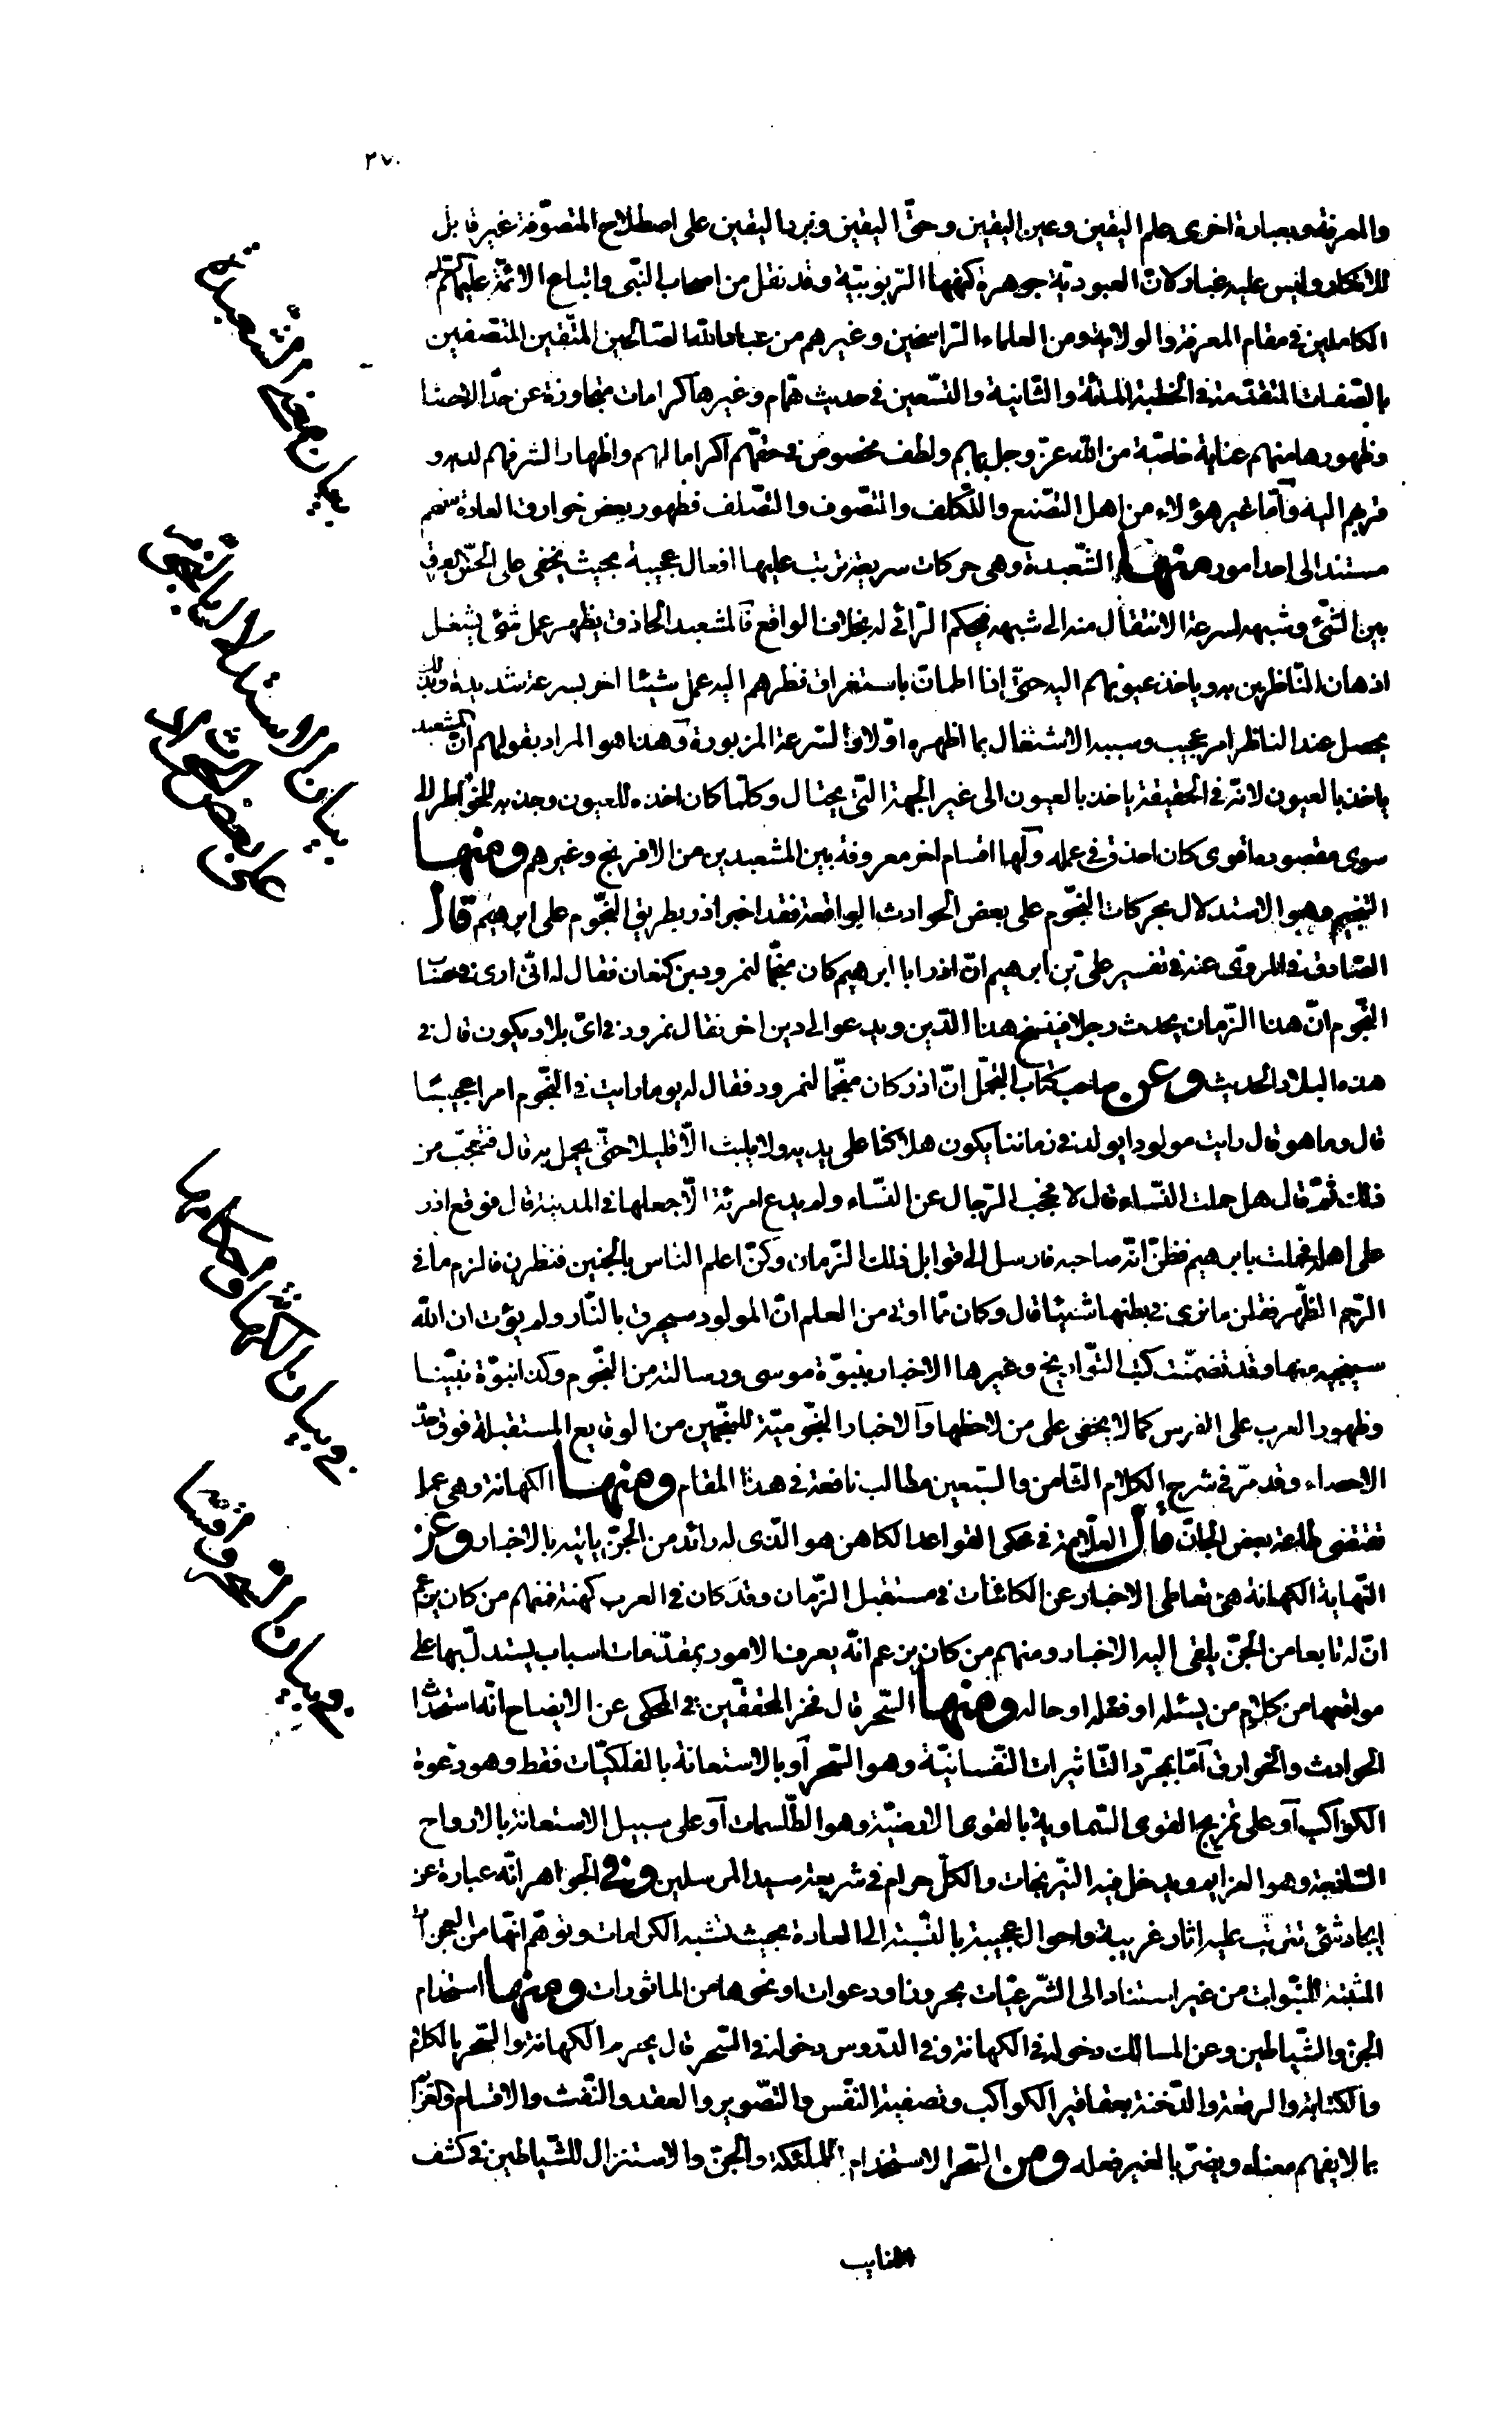 ٢٧٠
والمعرفة وبعبارة اخرى بعلم اليقين وعين اليقين وحقّ اليقين وبرد اليقين على اصطلاح المتصوّفة غير قابل
للانكار وليس عليه غبار كان العبوديّة جوهرة كنهها الرّبوبيّة وقد نقل من اصحاب النّبى واتباع الائمّة عليهم
الكاملين في مقام المعرفة والولاية ومن العلماء الرّاسخين وغيرهم من عباد الله الصّالحين المتّقين المتّصفين
بالصّفات المتقدّمة في الخطبة المائة والثّانية والتّسعين في حديث همّام وغيرها كرامات متجاوزة عن حدّ الاحصا
وظهورها منهم عناية خاصّة من الله عزّ وجل بهم ولطف مخصوص في حقّهم اكراما لهم واظهارا لشرفهم لديه و
قربهم اليه وامّا غير هؤلاء من اهل التّصنّع والتّكلف والتّصوف والتّصلف فظهور بعض خوارق العادة منهم
مستند الى احد امور منها الشّعبدة وهى حركات سريعة ترتب عليها افعال عجيبة بحيث يخفى على الحسّ الفرق
بين الشّىء وشبهه لسرعة الانتقال منه الى شبهه فيحكم الرّائى له بخلاف الواقع فالمشعبد الحاذق يظهر عمل شىء يشغل
اذهان النّاظرين به وياخذ عيونهم اليه حتّى اذا اطمأنّ باستغراق نظرهم اليه عمل شيئا اخر بسرعة شديدة وبذلك
يحصل عند الناظر امر عجيب وسببه الاشتغال بما اظهره اوّلا والسّرعة المزبورة وهذا هو المراد بقولهم انّ المشعبد
ياخذ بالعيون لانّه في الحقيقة ياخذ بالعيون الى غير الجهة الّتى يحتال وكلّما كان اخذه للعيون وجذبه للخواطر الى
سوى مقصوده اقوى كان احذق في عمله ولها اقسام اخر معروفة بين المشعبدين من الافرنج وغيرهم ومنها
التنجيم وهو الاستدلال بحركات النجوم على بعض الحوادث الواقعة فقد اخبر اذر بطريق النجوم على ابرهيم قال
الصّادق في المروىّ عنه في تفسير علىّ بن ابرهيم انّ اذر ابا ابرهيم كان منجّما لنمرود بن كنعان فقال له انّى ارى في حساب
النجوم انّ هذا الزّمان يحدث رجلا فينسخ هذا الدّين ويدعو الى دين اخر فقال نمرود في اىّ بلاد يكون قال في
هذه البلاد الحديث وعن صاحب كتاب التجمّل انّ اذر كان منجّما لنمرود فقال له يوما رايت في النّجوم امرا عجيبًا
قال وما هو قال رايت مولودا يولد في زماننا يكون هلاكنا على يديه ولا يلبث الّا قليلا حتّى يحمل به قال فتعجّب من
ذلك ثمّ قال هل حملت النّساء قال لا فحجب الرّجال عن النّساء ولم يدع امرئة الّا جعلها في المدينة قال فوقع اذر
على اهله فحملت بابرهيم فظنّ انّه صاحبه فارسل الى قوابل ذلك الزّمان وكنّ اعلم الناس بالجنين فنظرن فالزم ما في
الرّحم الظّهر فقلن ما نرى في بطنها شيئا قال وكان ممّا اوتى من العلم انّ المولود سيحرق بالنّار ولم يؤت ان الله
سينجيه منها وقد تضمّنت كتب التّواريخ وغيرها الاخبار بنبوّة موسى ورسالته من النجوم وكذا نبوّة نبيّنا
وظهور العرب على الفرس كما لا يخفى على من لاحظها والاخبار النجوميّة للمنجّمين من الوقايع المستقبلة فوق حدّ
الاحصاء وقد مرّ في شرح الكلام الثّامن والسّبعين مطالب نافعة في هذا المقام ومنها الكهانة وهى عمل
تقتضى طاعة بعض الجانّ قال العلّامة في محكى القواعد الكاهن هو الّذى له رائد من الجنّ ياتيه بالاخبار وعن
النّهاية الكهانة هى تعاطى الاخبار عن الكائنات في مستقبل الزّمان وقد كان في العرب كهنة فمنهم من كان يزعم
انّ له تابعا من الجنّ يلقى اليه الاخبار ومنهم من كان يزعم انّه يعرف الامور بمقدّمات اسباب يستدلّ بها على
مواقعها من كلام من يسئله او فعله او حاله ومنها السّحر قال فخر المحققّين في المحكى عن الايضاح انّه استحداث
الحوادث والخوارق امّا بمجرّد التّاثيرات النّفسانيّة وهو السّحر او بالاستعانة بالفلكيّات فقط وهو دعوة
الكواكب او على تمزيج القوى السّماوية بالقوى الارضيّة وهو الطّلسمات او على سبيل الاستعانة بالارواح
السّاذجة وهو العزايم ويدخل فيه النّيرنجات والكلّ حرام في شريعة سيد المرسلين وفى الجواهر انّه عبارة عن
ايجاد شىء تترتّب عليه اثار غريبة واحوال عجيبة بالنّسبة الى العادة بحيث تشبه الكرامات وتوهّم انّها من المعجزات
المثبتة للنبّوات من غير استناد الى الشّرعيّات بحروف ودعوات او نحوها من الماثورات ومنها استخدام
الجنّ والشّياطين وعن المسالك دخوله في الكهانة وفي الدّروس دخوله في السّحر قال يحرم الكهانة والسّحر بالكلام
والكتابة والرقية والدّخنة بعقاقير الكواكب وتصفية النّفس والتّصوير والعقد والنّفث والاقسام والعزائم
بما لا يفهم معناه ويضرّ بالغير فعله ومن السّحر الاستخدام للملئكة والجنّ والاستنزال للشّياطين في كشف
الغايب
بيان معنى الشعبدة
بيان الاستدلال بالنجوم
على بعض الحوادث
في بيان الكهانة واحكامها
في بيان السحر واقسا